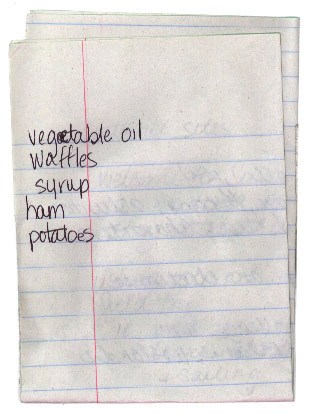 vegetable oil
waffles
syrup
ham
potatoes